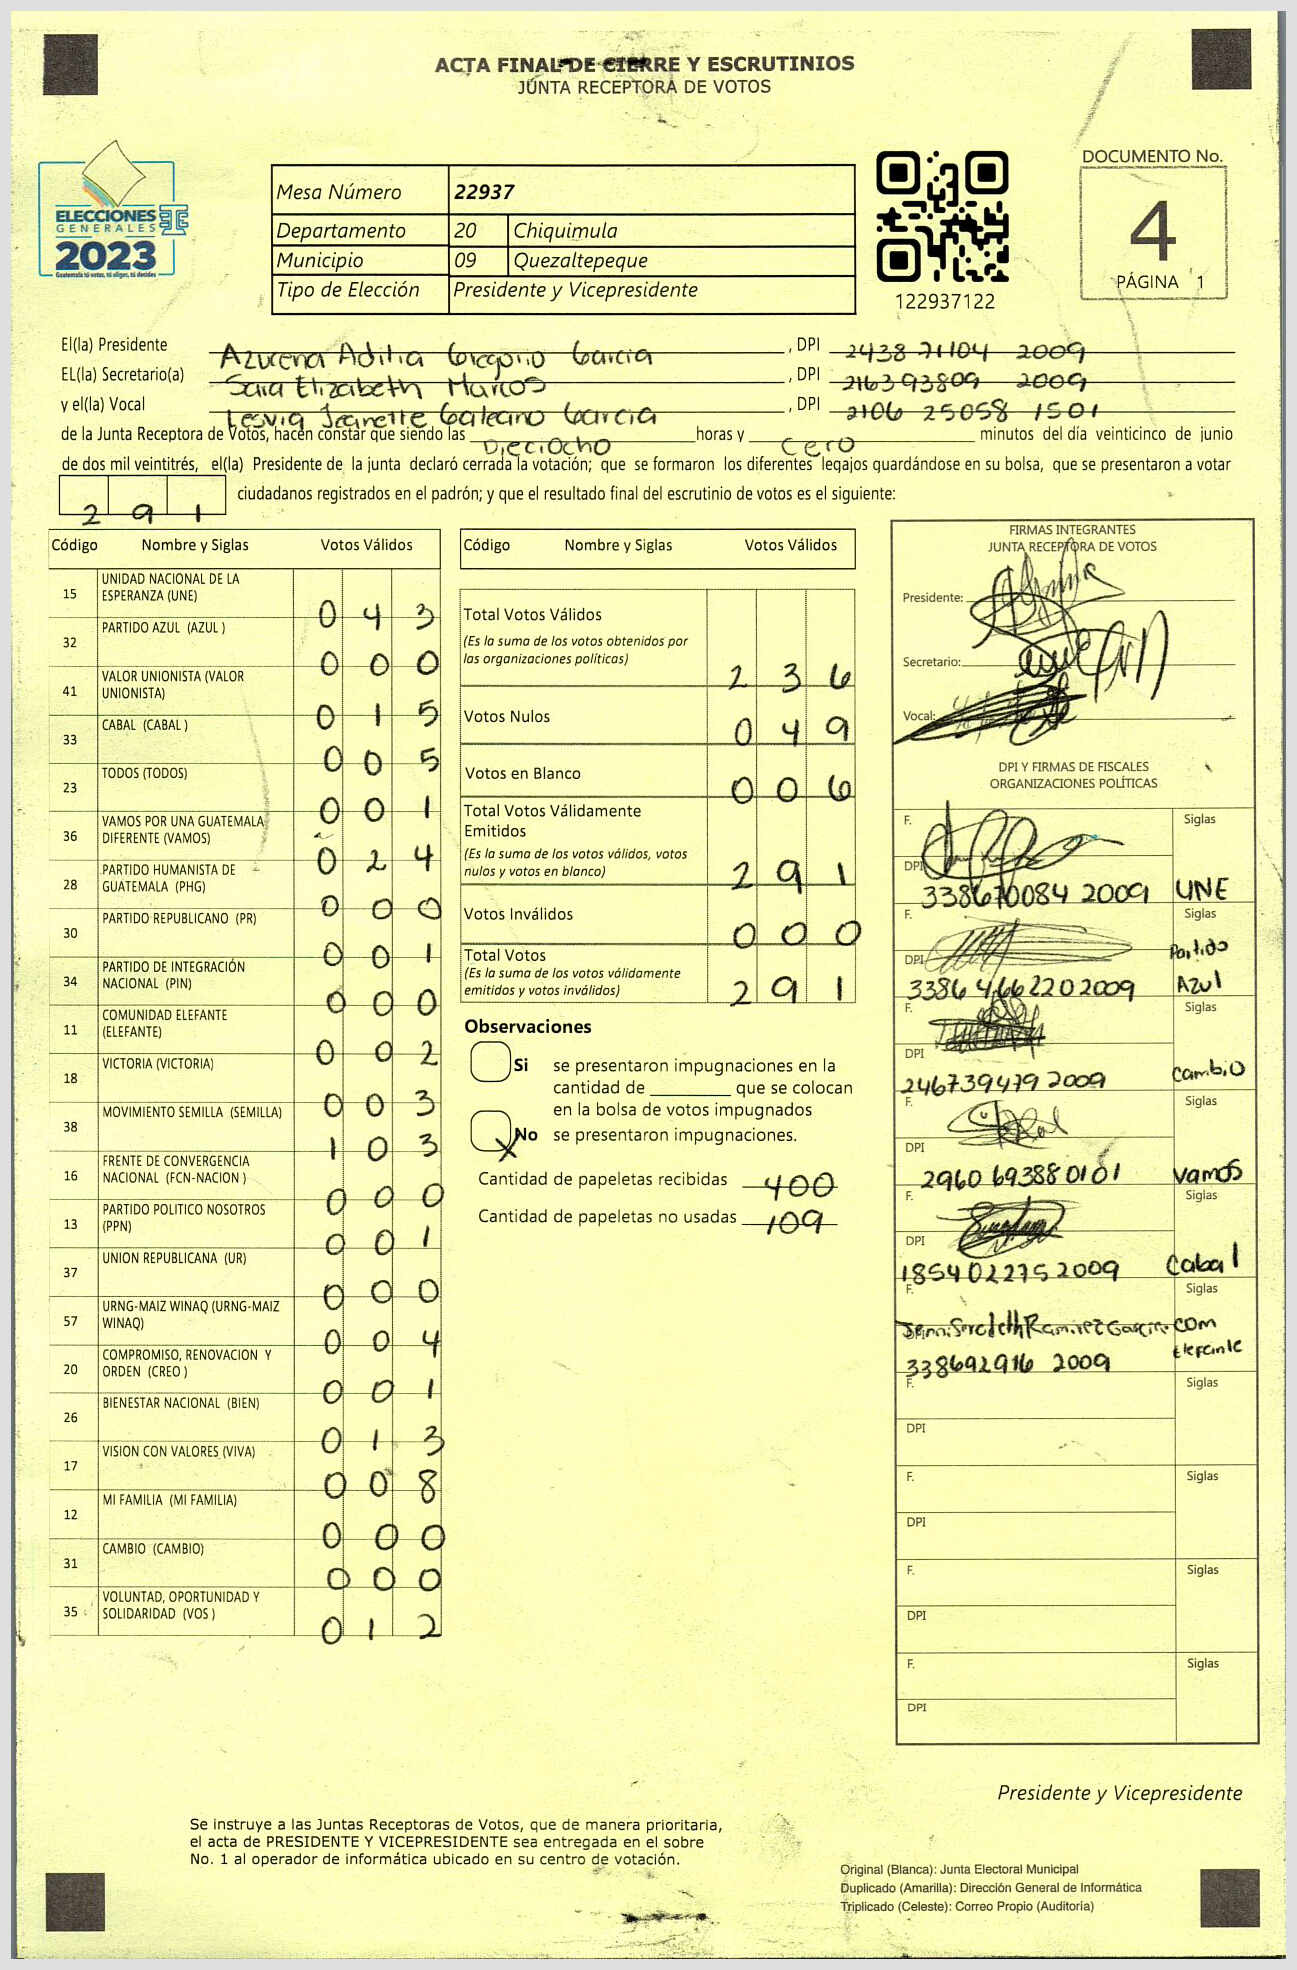 ACTA FINAL DE CIERRE Y ESCRUTINIOS
JUNTA RECEPTORA DE VOTOS
ELECCIONES
GENERALES
2023
Guatemala tú votas, tú eliges, tú decides
Mesa Número 22937
Departamento 20 Chiquimula
Municipio 09 Quezaltepeque
Tipo de Elección Presidente y Vicepresidente
122937122
DOCUMENTO No.
4
PÁGINA 1
El(la) Presidente Azucena Adilia Gregorio Garcia, DPI 2438 71104 2009
EL(la) Secretario(a) Sara Elizabeth Marcos, DPI 216393809 2009
y el(la) Vocal Lesvia Jeanette Galeano Garcia, DPI 2106 25058 1501
de la Junta Receptora de Votos, hacen constar que siendo las Dieciocho horas y cero minutos del día veinticinco de junio
de dos mil veintitrés, el(la) Presidente de la junta declaró cerrada la votación; que se formaron los diferentes legajos guardándose en su bolsa, que se presentaron a votar
2 9 1 ciudadanos registrados en el padrón; y que el resultado final del escrutinio de votos es el siguiente:
Código Nombre y Siglas Votos Válidos
15 UNIDAD NACIONAL DE LA
ESPERANZA (UNE) 0 4 3
32 PARTIDO AZUL (AZUL ) 0 0 0
41 VALOR UNIONISTA (VALOR
UNIONISTA) 0 1 5
33 CABAL (CABAL ) 0 0 5
23 TODOS (TODOS) 0 0 1
36 VAMOS POR UNA GUATEMALA
DIFERENTE (VAMOS) 0 2 4
28 PARTIDO HUMANISTA DE
GUATEMALA (PHG) 0 0 0
30 PARTIDO REPUBLICANO (PR) 0 0 1
34 PARTIDO DE INTEGRACIÓN
NACIONAL (PIN) 0 0 0
11 COMUNIDAD ELEFANTE
(ELEFANTE) 0 0 2
18 VICTORIA (VICTORIA) 0 0 3
38 MOVIMIENTO SEMILLA (SEMILLA) 1 0 3
16 FRENTE DE CONVERGENCIA
NACIONAL (FCN-NACION ) 0 0 0
13 PARTIDO POLITICO NOSOTROS
(PPN) 0 0 1
37 UNION REPUBLICANA (UR) 0 0 0
57 URNG-MAIZ WINAQ (URNG-MAIZ
WINAQ) 0 0 4
20 COMPROMISO, RENOVACION Y
ORDEN (CREO ) 0 0 1
26 BIENESTAR NACIONAL (BIEN) 0 1 3
17 VISION CON VALORES (VIVA) 0 0 8
12 MI FAMILIA (MI FAMILIA) 0 0 0
31 CAMBIO (CAMBIO) 0 0 0
35 VOLUNTAD, OPORTUNIDAD Y
SOLIDARIDAD (VOS ) 0 1 2
Código Nombre y Siglas Votos Válidos
Total Votos Válidos
(Es la suma de los votos obtenidos por
las organizaciones políticas) 2 3 6
Votos Nulos 0 4 9
Votos en Blanco 0 0 6
Total Votos Válidamente
Emitidos
(Es la suma de los votos válidos, votos
nulos y votos en blanco) 2 9 1
Votos Inválidos 0 0 0
Total Votos
(Es la suma de los votos válidamente
emitidos y votos inválidos) 2 9 1
Observaciones
Si se presentaron impugnaciones en la
cantidad de ________ que se colocan
en la bolsa de votos impugnados
X No se presentaron impugnaciones.
Cantidad de papeletas recibidas 400
Cantidad de papeletas no usadas 109
FIRMAS INTEGRANTES
JUNTA RECEPTORA DE VOTOS
Presidente:
Secretario:
Vocal:
DPI Y FIRMAS DE FISCALES
ORGANIZACIONES POLÍTICAS
F. Siglas
DPI 338670084 2009 UNE
F. Siglas
DPI 3386 46622 0 2009 Partido
Azul
F. Siglas
DPI 246739479 2009 Cambio
F. Siglas
DPI 2960 69388 0101 Vamos
F. Siglas
DPI 1854 02275 2009 Cabal
F. Siglas
Ramirez Garcia com
338692916 2009 Elefante
F. Siglas
DPI
F. Siglas
DPI
F. Siglas
DPI
F. Siglas
DPI
Presidente y Vicepresidente
Se instruye a las Juntas Receptoras de Votos, que de manera prioritaria,
el acta de PRESIDENTE Y VICEPRESIDENTE sea entregada en el sobre
No. 1 al operador de informática ubicado en su centro de votación.
Original (Blanca): Junta Electoral Municipal
Duplicado (Amarilla): Dirección General de Informática
Triplicado (Celeste): Correo Propio (Auditoría)